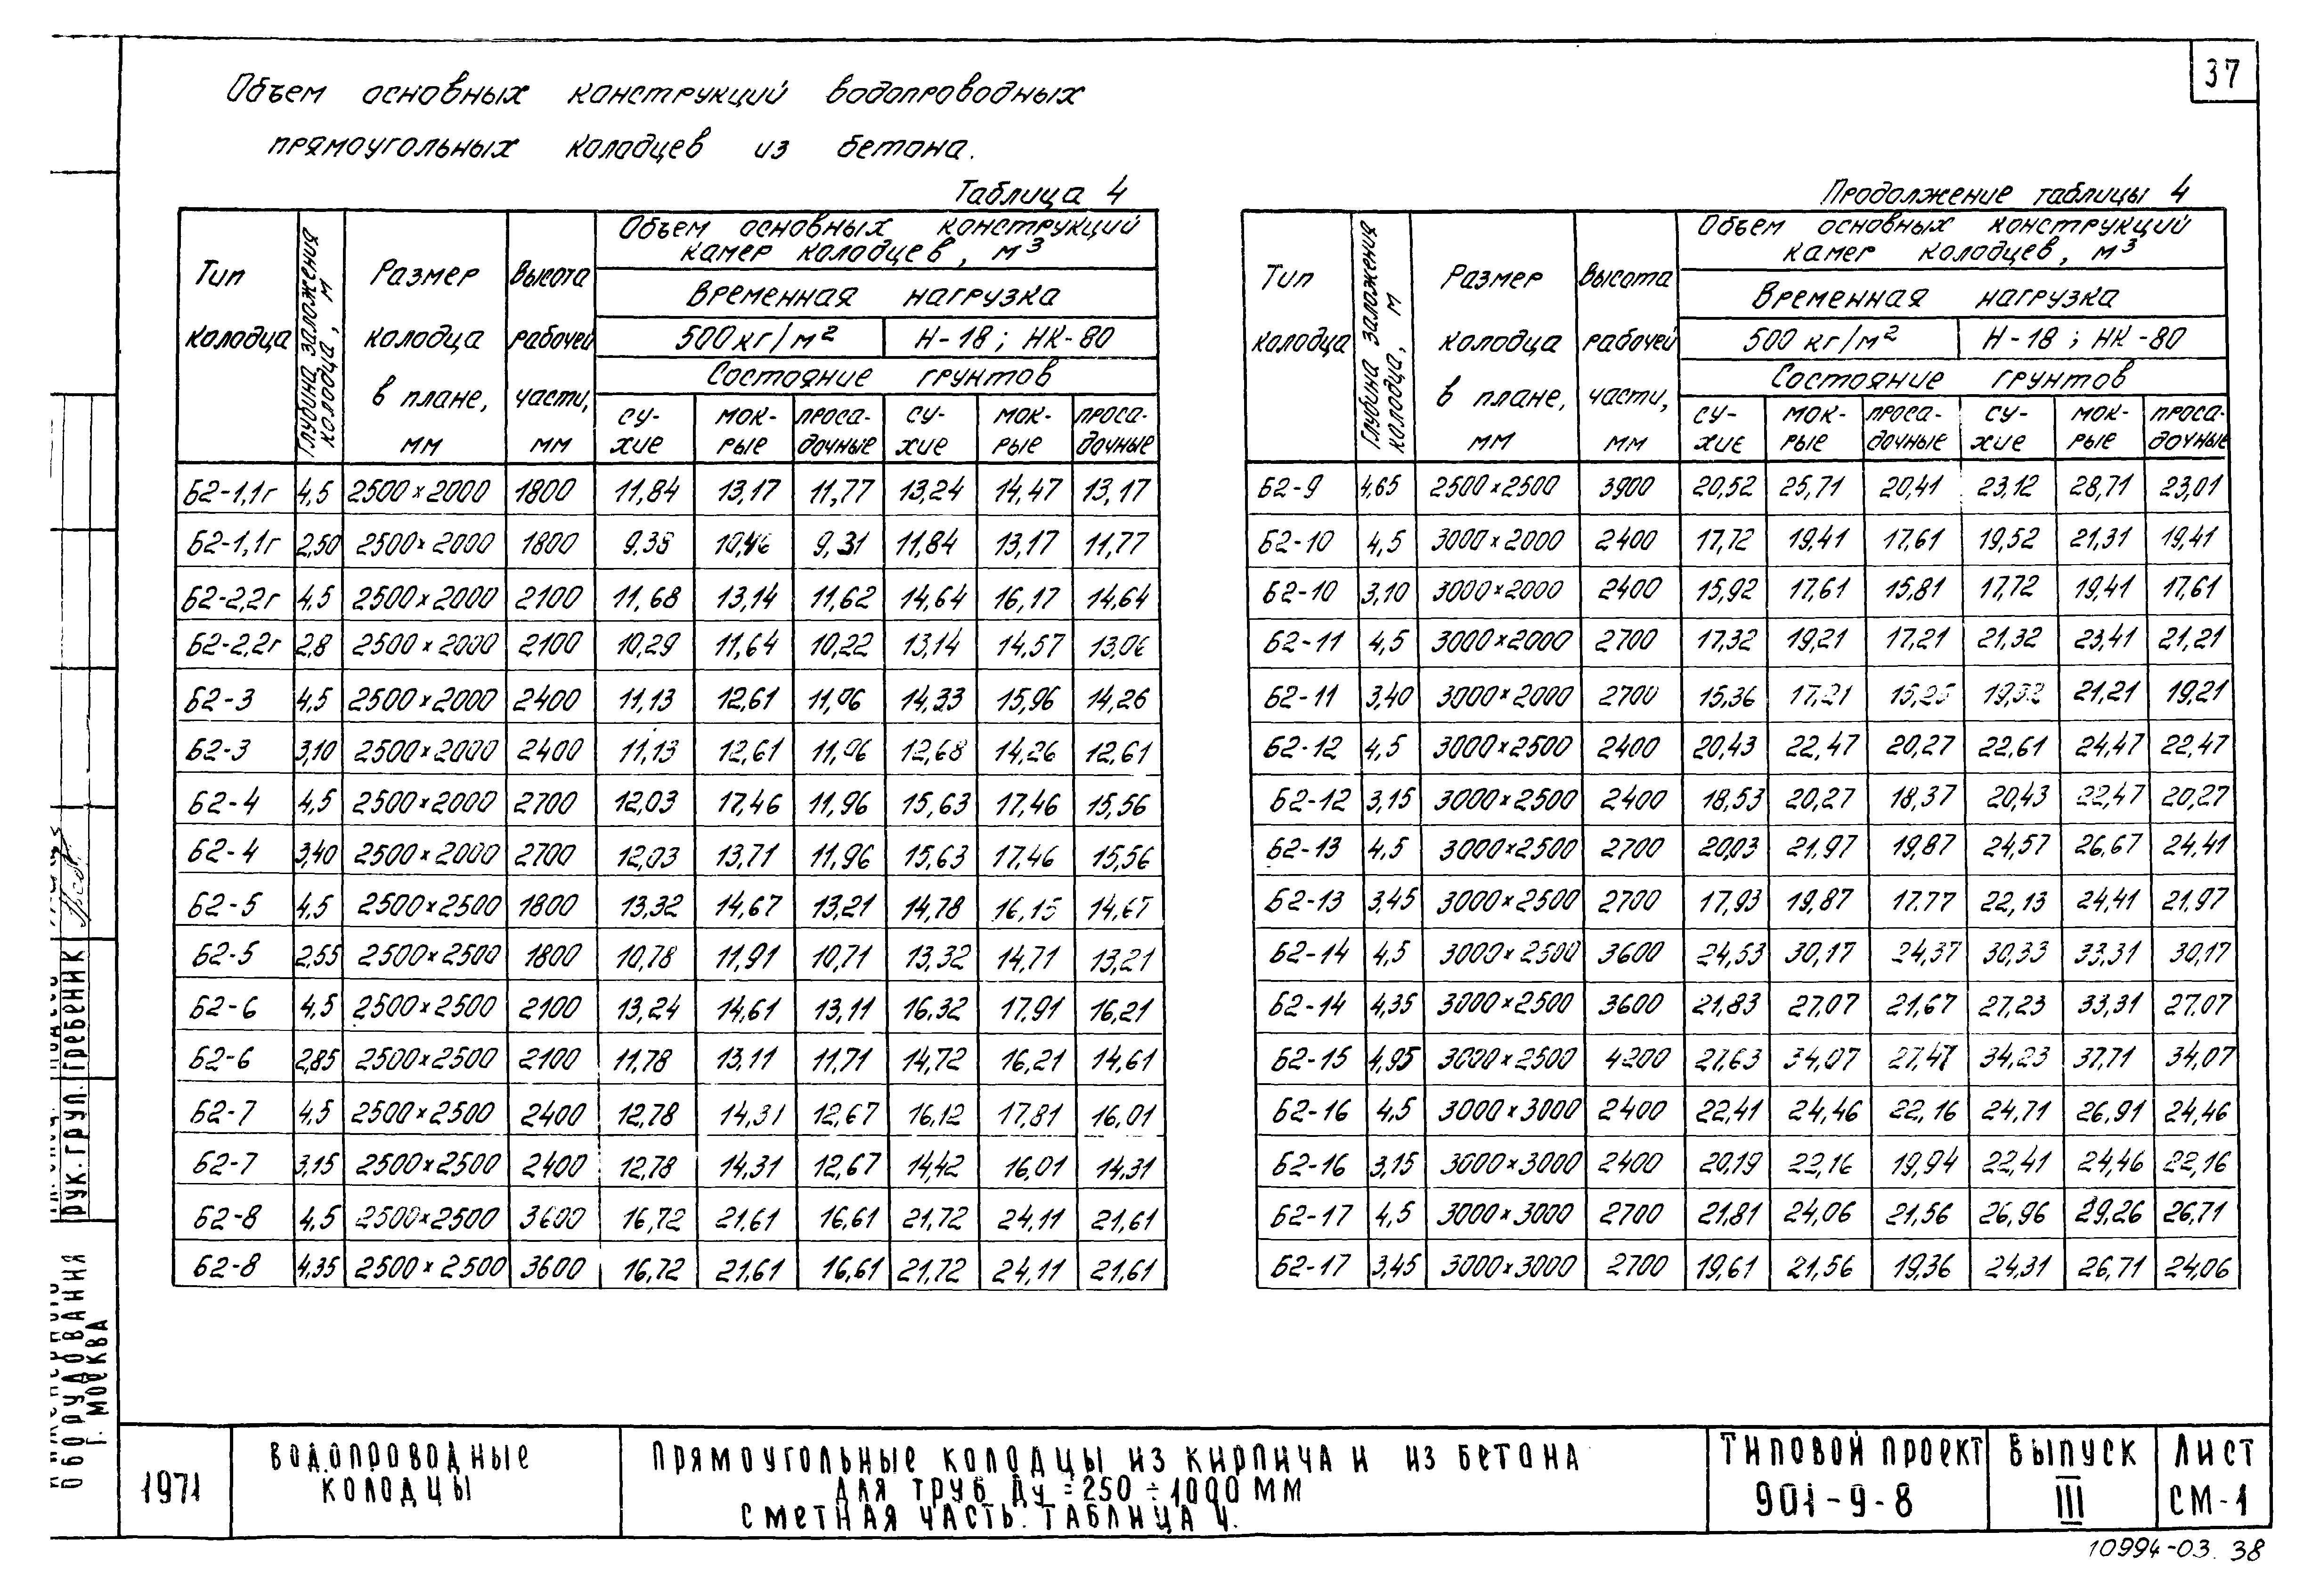 37
Объем основных конструкций водопроводных
прямоугольных колодцев из бетона.
Таблица 4
Тип колодца | Глубина заложения колодца, м | Размер колодца в плане, мм | Высота рабочей части, мм | Объем основных конструкций камер колодцев, м³
Временная нагрузка
500 кг/м² | Н-18; НК-80
Состояние грунтов
су-хие | мок-рые | проса-дочные | су-хие | мок-рые | проса-дочные
Б2-1,1г 4,5 2500×2000 1800 11,84 13,17 11,77 13,24 14,47 13,17
Б2-1,1г 2,50 2500×2000 1800 9,38 10,46 9,31 11,84 13,17 11,77
Б2-2,2г 4,5 2500×2000 2100 11,68 13,14 11,62 14,64 16,17 14,64
Б2-2,2г 2,8 2500×2000 2100 10,29 11,64 10,22 13,14 14,57 13,06
Б2-3 4,5 2500×2000 2400 11,13 12,61 11,06 14,33 15,96 14,26
Б2-3 3,10 2500×2000 2400 11,13 12,61 11,06 12,68 14,26 12,61
Б2-4 4,5 2500×2000 2700 12,03 17,46 11,96 15,63 17,46 15,56
Б2-4 3,40 2500×2000 2700 12,03 13,71 11,96 15,63 17,46 15,56
Б2-5 4,5 2500×2500 1800 13,32 14,67 13,21 14,78 16,15 14,67
Б2-5 2,55 2500×2500 1800 10,78 11,91 10,71 13,32 14,71 13,21
Б2-6 4,5 2500×2500 2100 13,24 14,61 13,11 16,32 17,91 16,21
Б2-6 2,85 2500×2500 2100 11,78 13,11 11,71 14,72 16,21 14,61
Б2-7 4,5 2500×2500 2400 12,78 14,31 12,67 16,12 17,81 16,01
Б2-7 3,15 2500×2500 2400 12,78 14,31 12,67 14,42 16,01 14,31
Б2-8 4,5 2500×2500 3600 16,72 21,61 16,61 21,72 24,11 21,61
Б2-8 4,35 2500×2500 3600 16,72 21,61 16,61 21,72 24,11 21,61
Продолжение таблицы 4
Тип колодца | Глубина заложения колодца, м | Размер колодца в плане, мм | Высота рабочей части, мм | Объем основных конструкций камер колодцев, м³
Временная нагрузка
500 кг/м² | Н-18; НК-80
Состояние грунтов
су-хие | мок-рые | проса-дочные | су-хие | мок-рые | проса-дочные
Б2-9 4,65 2500×2500 3900 20,52 25,71 20,41 23,12 28,71 23,01
Б2-10 4,5 3000×2000 2400 17,72 19,41 17,61 19,52 21,31 19,41
Б2-10 3,10 3000×2000 2400 15,92 17,61 15,81 17,72 19,41 17,61
Б2-11 4,5 3000×2000 2700 17,32 19,21 17,21 21,32 23,41 21,21
Б2-11 3,40 3000×2000 2700 15,36 17,21 15,25 19,32 21,21 19,21
Б2-12 4,5 3000×2500 2400 20,43 22,47 20,27 22,61 24,47 22,47
Б2-12 3,15 3000×2500 2400 18,53 20,27 18,37 20,43 22,47 20,27
Б2-13 4,5 3000×2500 2700 20,03 21,97 19,87 24,57 26,67 24,41
Б2-13 3,45 3000×2500 2700 17,93 19,87 17.77 22,13 24,41 21,97
Б2-14 4,5 3000×2500 3600 24,53 30,17 24,37 30,33 33,31 30,17
Б2-14 4,35 3000×2500 3600 21,83 27,07 21,67 27,23 33,31 27,07
Б2-15 4,95 3000×2500 4200 27,63 34,07 27,47 34,23 37,71 34,07
Б2-16 4,5 3000×3000 2400 22,41 24,46 22,16 24,71 26,91 24,46
Б2-16 3,15 3000×3000 2400 20,19 22,16 19,94 22,41 24,46 22,16
Б2-17 4,5 3000×3000 2700 21,81 24,06 21,56 26,96 29,26 26,71
Б2-17 3,45 3000×3000 2700 19,61 21,56 19,36 24,31 26,71 24,06
Рук. груп. Гребеник
оборудования
г. Москва
1971
Водопроводные
колодцы
Прямоугольные колодцы из кирпича и из бетона
для труб Ду=250÷1000 мм
Сметная часть. Таблица 4.
Типовой проект
901-9-8
Выпуск
III
Лист
СМ-1
10994-03. 38